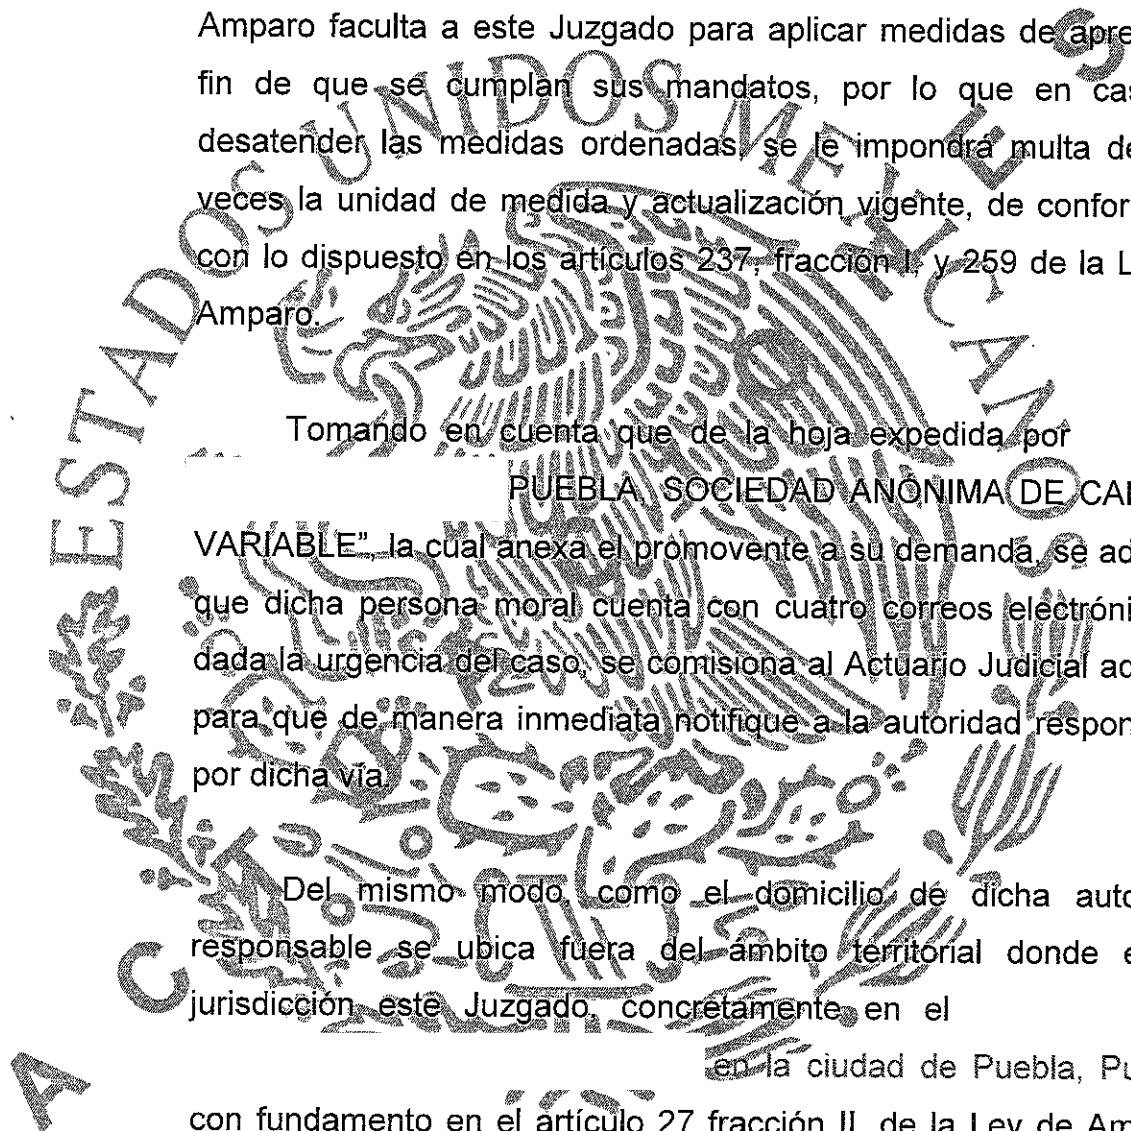 Amparo faculta a este Juzgado para aplicar medidas de apre
fin de que se cumplan sus mandatos, por lo que en cas
desatender las medidas ordenadas, se le impondrá multa de
veces la unidad de medida y actualización vigente, de confor
con lo dispuesto en los artículos 237, fracción I, y 259 de la L
Amparo.
Tomando en cuenta que de la hoja expedida por
PUEBLA, SOCIEDAD ANÓNIMA DE CA
VARIABLE", la cual anexa el promovente a su demanda, se ad
que dicha persona moral cuenta con cuatro correos electróni
dada la urgencia del caso, se comisiona al Actuario Judicial ad
para que de manera inmediata notifique a la autoridad respon
por dicha vía.
Del mismo modo, como el domicilio de dicha auto
responsable se ubica fuera del ámbito territorial donde e
jurisdicción este Juzgado, concretamente en el
en la ciudad de Puebla, Pu
con fundamento en el artículo 27 fracción II, de la Ley de Am
ESTADOS UNIDOS MEXICANOS